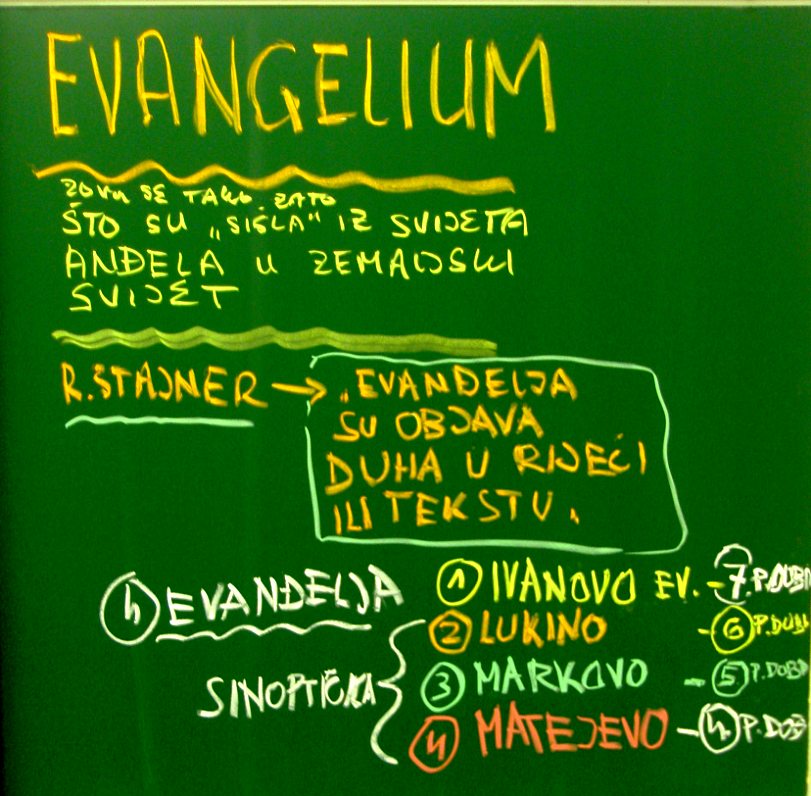 EVANGELIUM
ZOVU SE TAKO ZATO
ŠTO SU „SIŠLA“ IZ SVIJETA
ANĐELA U ZEMALJSKI
SVIJET
R. ŠTAJNER → „EVANĐELJA
SU OBJAVA
DUHA U RIJEČI
ILI TEKSTU.
4 EVANĐELJA
1 IVANOVO EV. - 7. P. DOBA
SINOPTIČKA
2 LUKINO - 6 P. DOBA
3 MARKOVO - 5 P. DOBA
4 MATEJEVO - 4 P. DOB